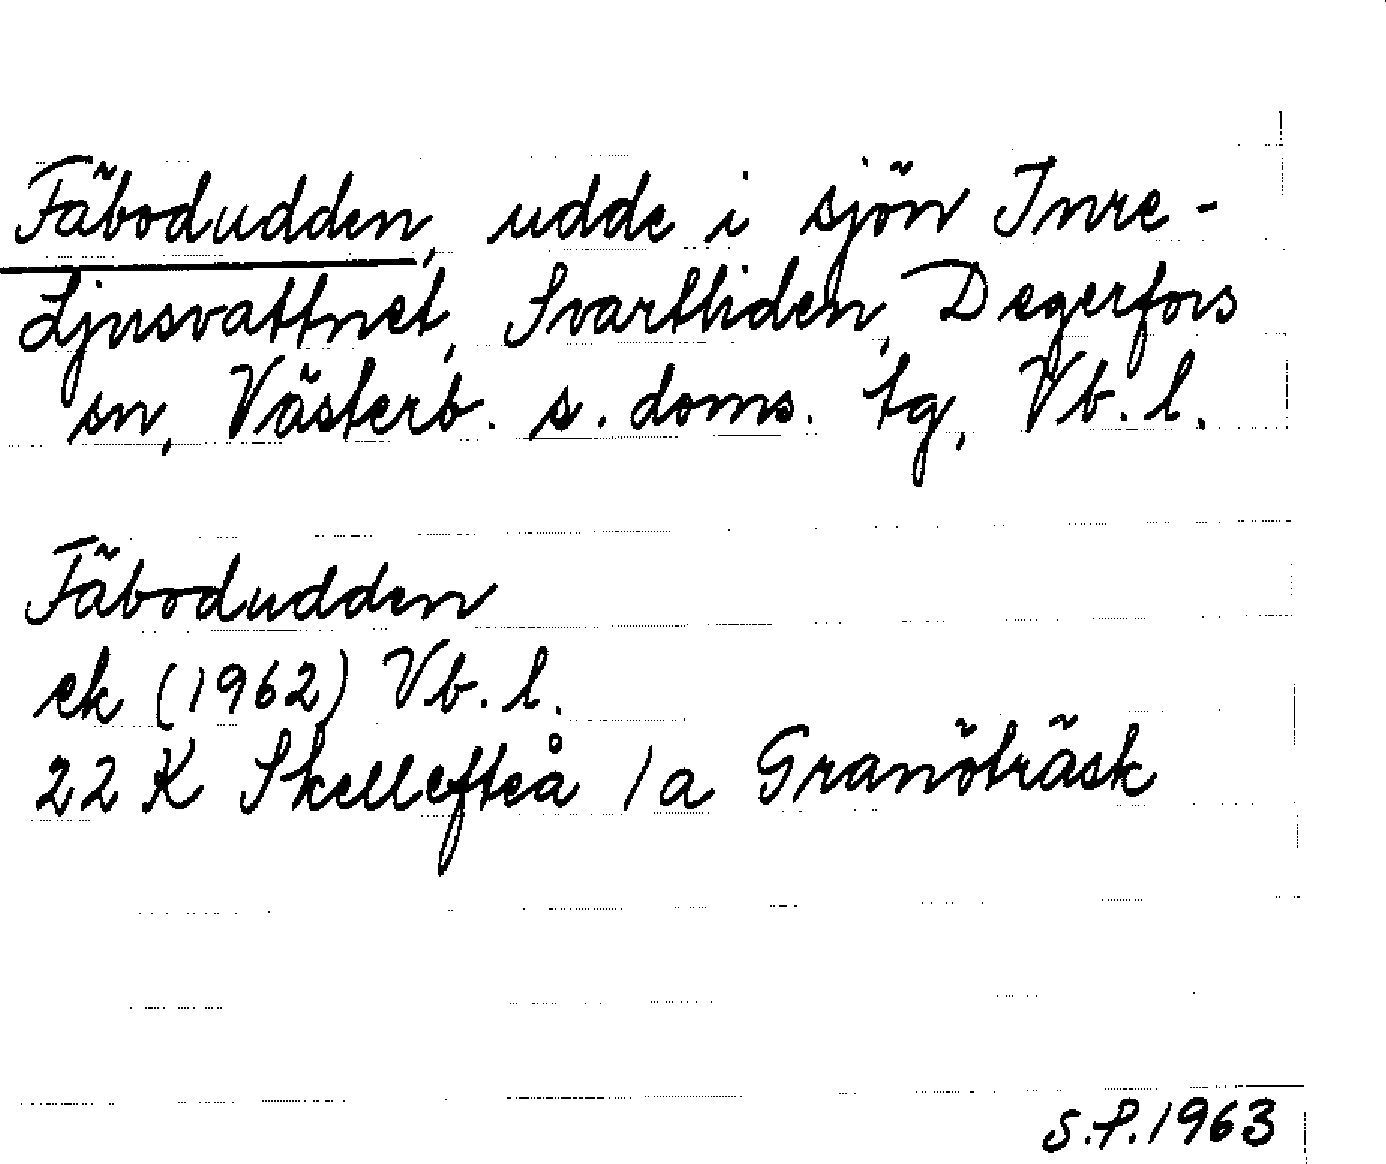 Fäbodudden, udde i sjön Inre-
Ljusvattnet, Svartliden, Degerfors
sn, Västerb. s. doms. tg, Vb. l.
Fäbodudden
ek (1962) Vb. l.
22 K Skellefteå 1a Granöträsk
S.P. 1963